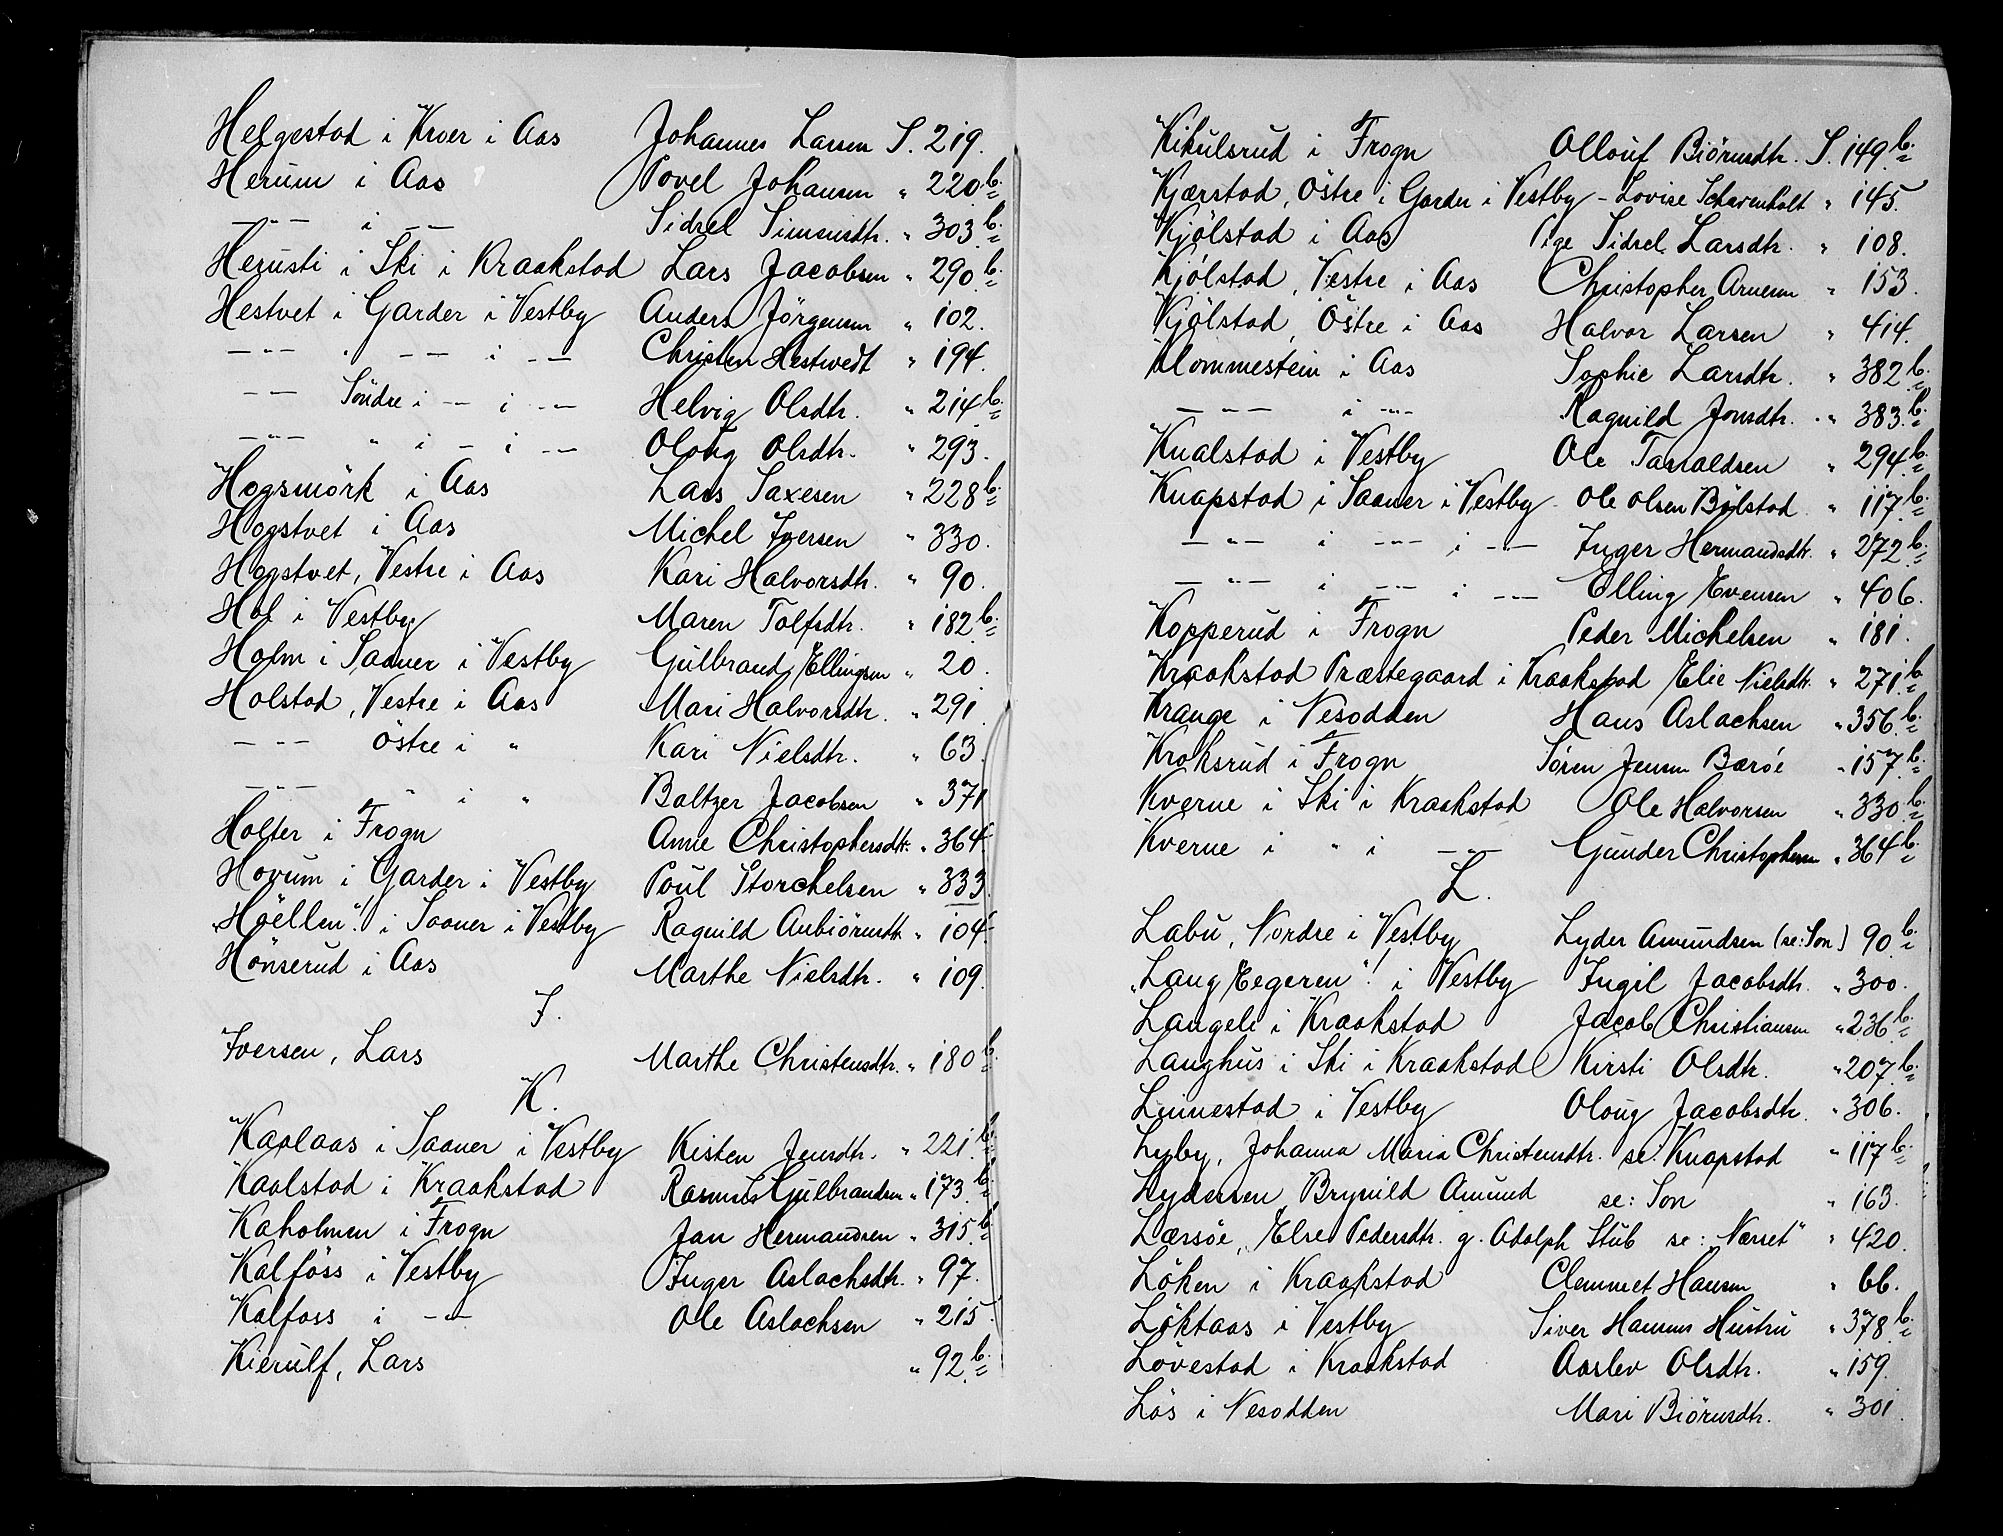 Helgestad i Kroer i Aas Johannes Larsen S. 219.
Herum i Aas Povel Johansen " 220 b.
—"— i —— Sidsel Simensdtr. " 303 b.
Herusti i Ski i Kraakstad Lars Jacobsen " 290 b.
Hestvet i Garder i Vestby Anders Jörgensen " 102.
—"— " —— i —"— Christen Hestvedt " 194.
—"— Söndre i —"— i —"— Helvig Olsdtr. " 214 b.
—"— " i — i —"— Oloug Olsdtr. " 293.
Hogsmörk i Aas Lars Saxesen " 228 b.
Hogstvet i Aas Michel Iversen " 330.
Hogstvet, Vestre i Aas Kari Halvorsdtr. " 90.
Hol i Vestby Maren Tolfsdtr. " 182 b.
Holm i Saaner i Vestby Gulbrand Ellingsen " 20.
Holstad, Vestre i Aas Mari Halvorsdtr. " 291.
—"— Östre i " Kari Nielsdtr. " 63.
—"— " i " Baltzer Jacobsen " 371
Holter i Frogn Anne Christophersdtr. " 364
Hovum i Garder i Vestby Poul Storchelsen " 333.
"Höellen"! i Saaner i Vestby Ragnild Anbiörnsdtr. " 104.
Hönserud i Aas Marthe Nielsdtr. " 109.
I.
Iversen, Lars Marthe Christensdtr. " 180 b.
K.
Kaalaas i Saaner i Vestby Kisten Jensdtr. " 221 b.
Kaalstad i Kraakstad Rasmus Gulbrandsen " 173 b.
Kaholmen i Frogn Jan Hermandsen " 315 b.
Kalföss i Vestby Inger Aslachsdtr. " 97.
Kalfoss i —"— Ole Aslachsen " 215.
Kierulf, Lars " 92 b.
Kikulsrud i Frogn Ollouf Biörnsdtr. S. 149 b.
Kjærstad, Östre i Garder i Vestby - Lovise Scharenholt " 145.
Kjölstad i Aas Pige Sidsel Larsdtr. " 108.
Kjölstad, Vestre i Aas Christopher Arnesen " 153.
Kjölstad, Östre i Aas Halvor Larsen " 414.
Klommestein i Aas Sophie Larsdtr. " 382 b.
—"— i —"— Ragnild Jonsdtr. " 383 b.
Knalstad i Vestby Ole Taraldsen " 294 b.
Knapstad i Saaner i Vestby - Ole Olsen Bölstad " 117 b.
—"— i —"— i —"— Inger Hermandsdtr. " 272 b.
—"— i —— i —"— Elling Evensen " 406.
Kopperud i Frogn Peder Michelsen " 181.
Kraakstad Præstegaard i Kraakstad Elie Nielsdtr. " 271 b.
Krange i Nesodden Hans Aslachsen " 356 b.
Kroksrud i Frogn Sören Jensen Bæröe " 157 b.
Kverne i Ski i Kraakstad Ole Halvorsen " 330 b.
Kverne i " i —"— Gunder Christophersen " 364 b.
L.
Labu, Nordre i Vestby Lyder Amundsen (se: Son) 90 b.
"Lang Eegeren"! i Vestby Ingil Jacobsdtr. " 300.
Langeli i Kraakstad Jacob Christiansen " 236 b.
Langhus i Ski i Kraakstad Kirsti Olsdtr. " 207 b.
Linnestad i Vestby Oloug Jacobsdtr. " 306.
Lyby, Johanna Maria Christensdtr. se: Knapstad " 117 b.
Lydersen Brynild Amund se: Son " 163.
Læssöe, Else Pedersdtr. g. Adolph Stub se: "Nærset" " 420.
Löken i Kraakstad Clemmet Hansen " 66.
Löktaas i Vestby Siver Hansens Hustru " 378 b.
Lövestad i Kraakstad Aaslev Olsdtr. " 159.
Lös i Nesodden Mari Biörnsdtr. " 301.